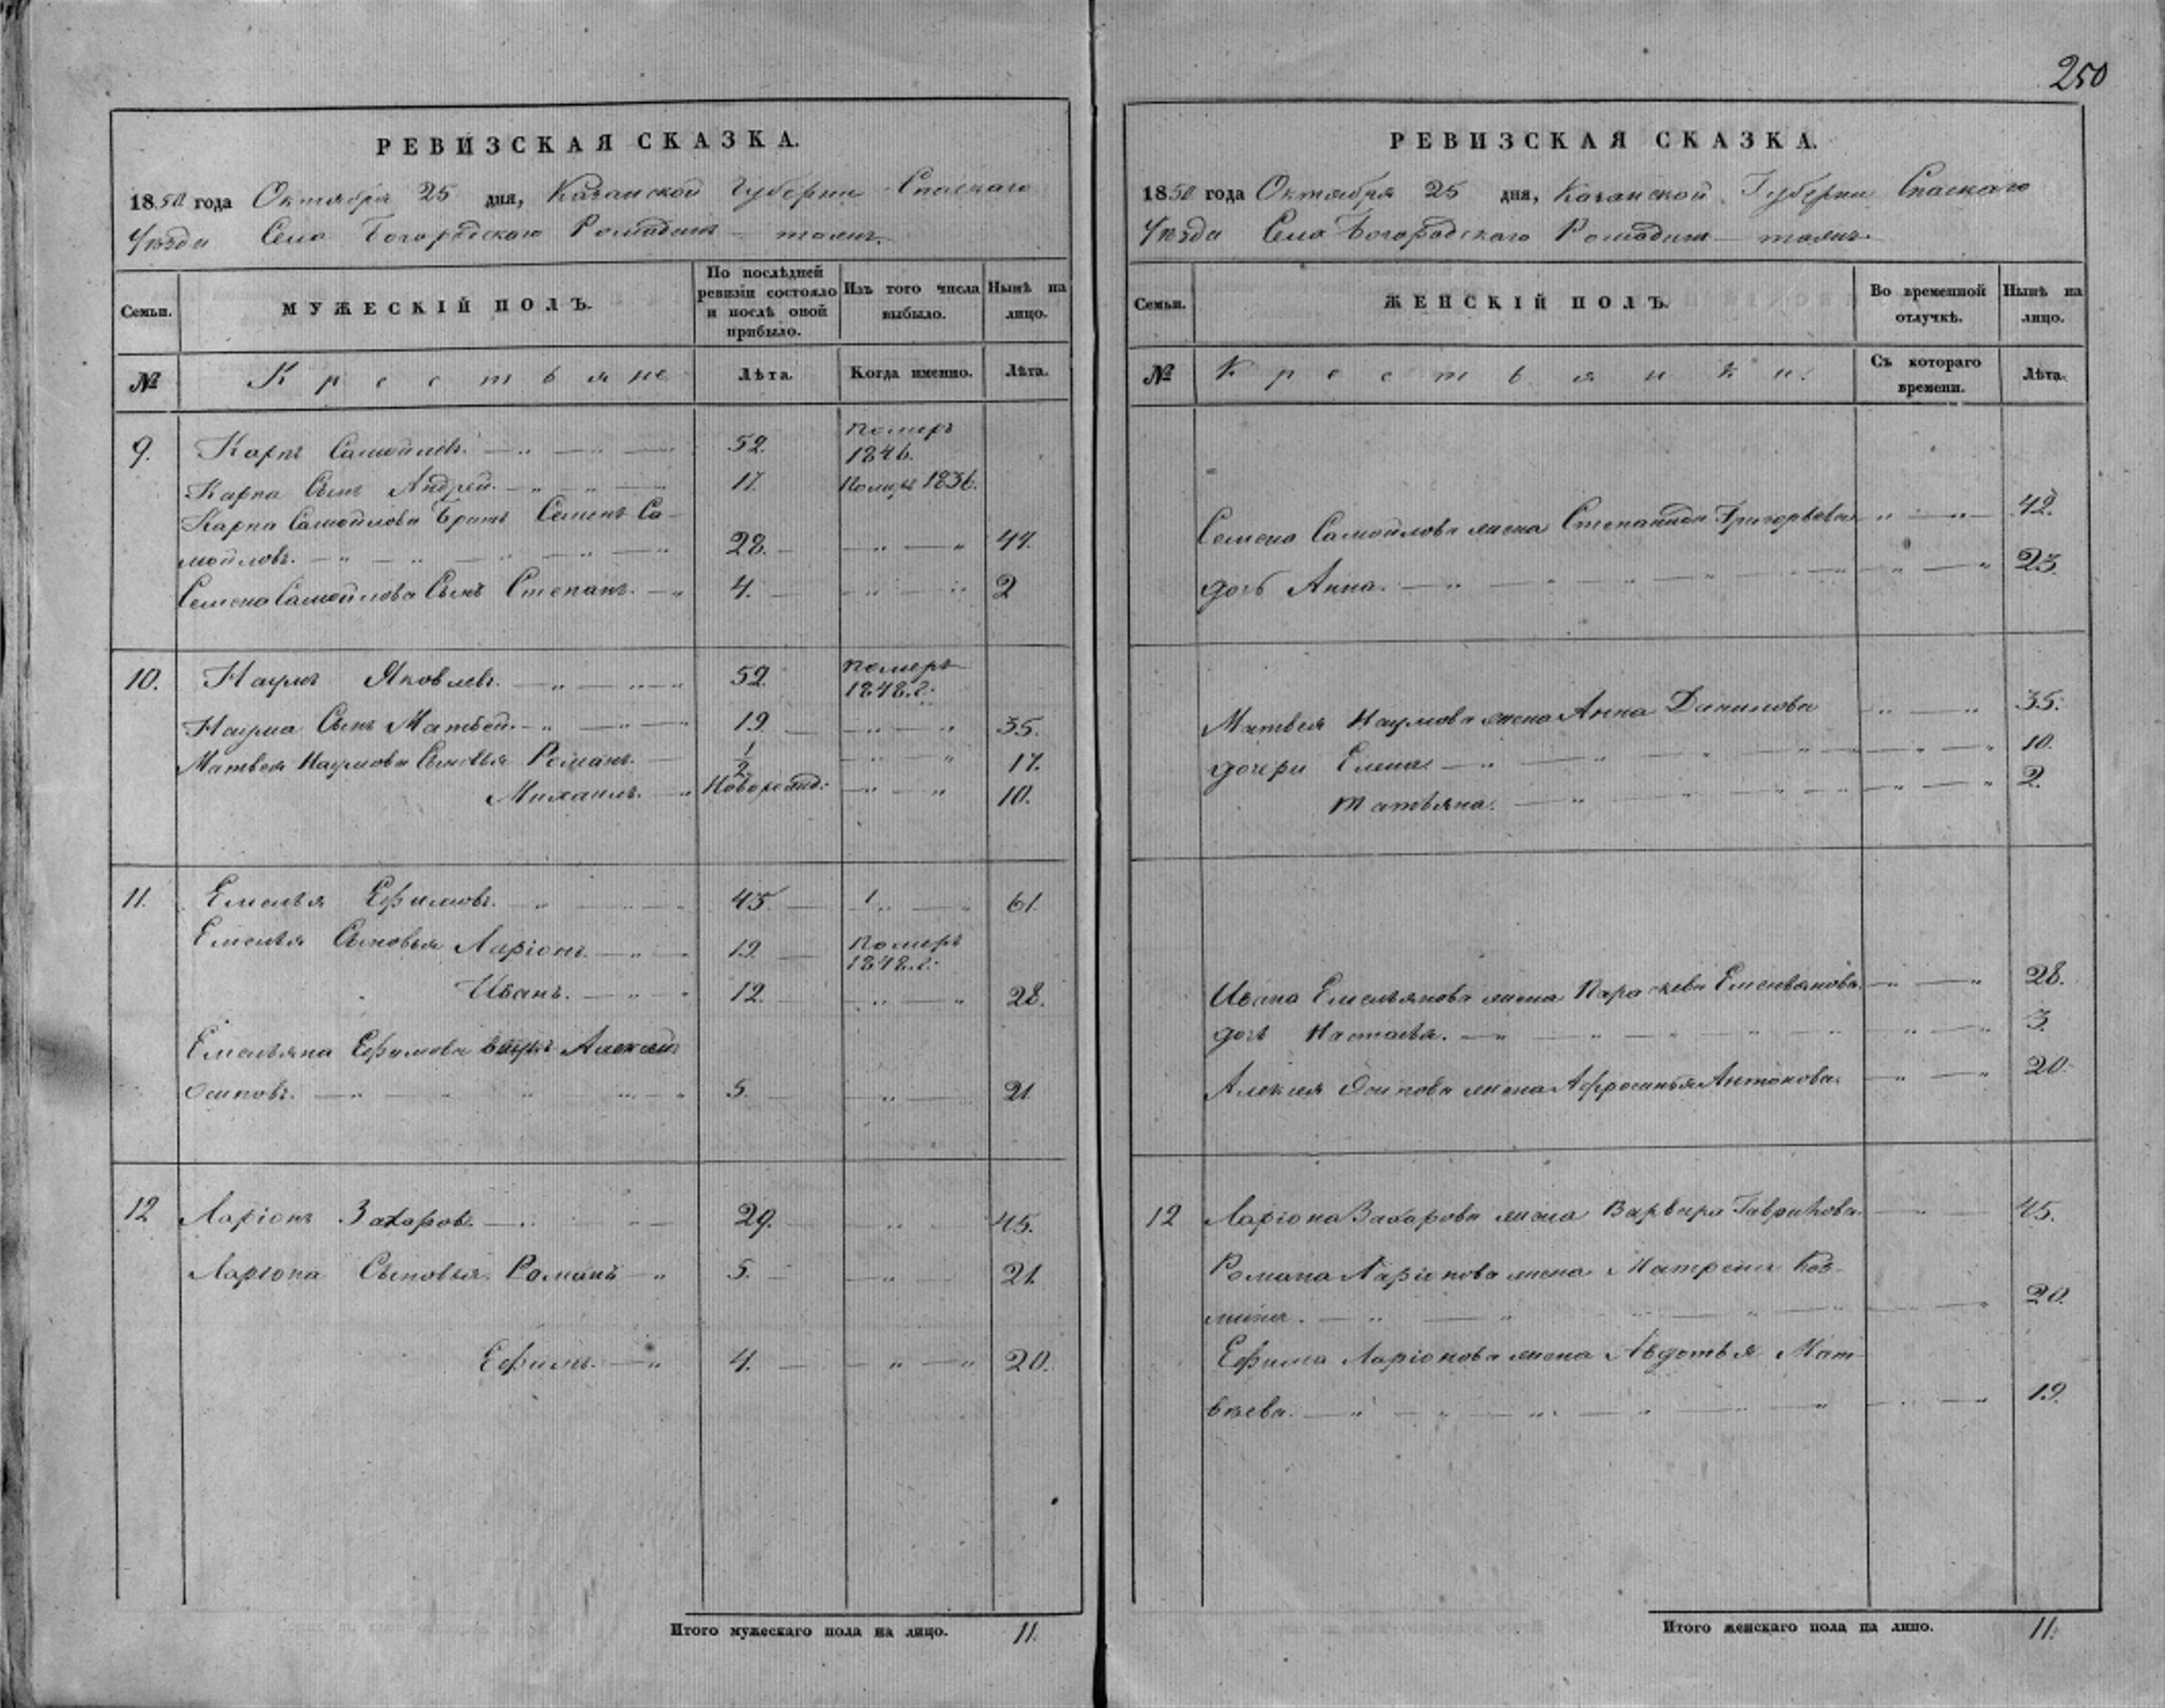 250
РЕВИЗСКАЯ СКАЗКА.
1850 года Октября 25 дня, Казанской Губернии Спаскаго
Уѣзда Села Богородскаго тожъ.
Семьи. МУЖЕСКІЙ ПОЛЪ. По послѣдней ревизіи состояло и послѣ оной прибыло. Изъ того числа выбыло. Нынѣ на лицо.
№ Крестьяне Лѣта. Когда именно. Лѣта.
9. Карпъ Самойловъ. 52. Померъ 1846.
Карпа Сынъ Андрей. 17. Померъ 1836.
Карпа Самойлова Братъ Семенъ Са-
мойловъ. 28. 44.
Семена Самойлова Сынъ Степанъ. 4. 2
10. Наумъ Яковлевъ. 52. Померъ 1848. г.
Наума Сынъ Матвей. 19. 35.
Матвея Наумова Сыновья Романъ. 1/2 17.
Михаилъ. Новорожд: 10.
11. Емелья Ефимовъ. 45. 61.
Емелья Сыновья Ларіонъ. 19. Померъ 1848. г.
Иванъ. 12. 28.
Емельяна Ефимова внукъ Алексей
Осиповъ. 5. 21
12 Ларіонъ Захаровъ. 29. 45.
Ларіона Сыновья Романъ 5. 21.
Ефимъ. 4. 20.
Итого мужескаго пола на лицо. 11.
РЕВИЗСКАЯ СКАЗКА.
1850 года Октября 25 дня, Казанской Губернии Спаскаго
Уѣзда Села Богородскаго тожъ.
Семьи. ЖЕНСКІЙ ПОЛЪ. Во временной отлучкѣ. Нынѣ на лицо.
№ Крестьянки. Съ котораго времени. Лѣта.
Семена Самойлова жена Степанида Григорьева 42.
дочь Анна. 23.
Матвея Наумова жена Анна Данилова 35.
дочери Елена 10.
Татьяна. 2.
Ивана Емельянова жена Параскева Емельянова. 28.
дочь Настасья. 3.
Алексея Осипова жена Афросинья Антонова. 20.
12 Ларіона Захарова жена Варвара Гаврилова. 45.
Романа Ларіонова жена Матрена Коз-
мина. 20.
Ефима Ларіонова жена Авдотья Мат-
вѣева. 19.
Итого женскаго пола на лицо. 11.